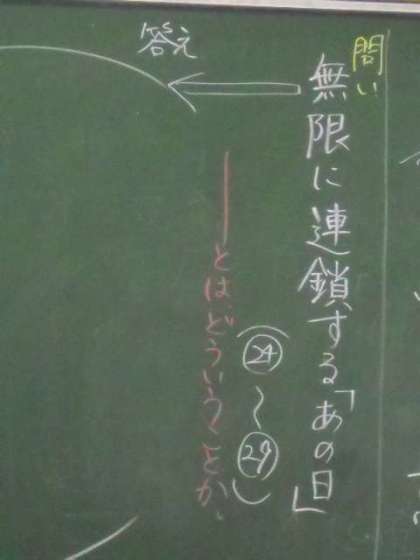 問い
無限に連鎖する「あの日」
(㉔〜㉙)
――とはどういうことか。
答え